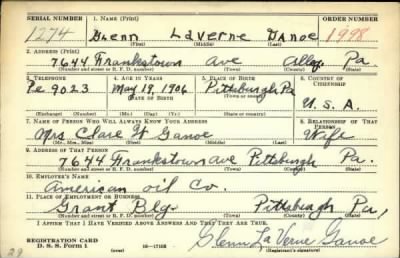 SERIAL NUMBER 1. NAME (Print) ORDER NUMBER
1274 Glenn LaVerne Ganoe 1998
(First) (Middle) (Last)
2. ADDRESS (Print)
7644 Frankstown Ave Alleg. Pa.
(Number and street or R. F. D. number) (Town) (County) (State)
3. TELEPHONE 4. AGE IN YEARS 5. PLACE OF BIRTH 6. COUNTRY OF CITIZENSHIP
Pe 9023 May 19, 1906 Pittsburgh Pa U.S.A.
(Town or county)
(Exchange) (Number) DATE OF BIRTH (Mo.) (Day) (Yr.) (State or country)
7. NAME OF PERSON WHO WILL ALWAYS KNOW YOUR ADDRESS 8. RELATIONSHIP OF THAT PERSON
Mrs Clare W Ganoe Wife
(Mr., Mrs., Miss) (First) (Middle) (Last)
9. ADDRESS OF THAT PERSON
7644 Frankstown Ave Pittsburgh Pa.
(Number and street or R. F. D. number) (Town) (County) (State)
10. EMPLOYER'S NAME
American Oil Co.
11. PLACE OF EMPLOYMENT OR BUSINESS
Grant Blg. Pittsburgh Pa,
(Number and street or R. F. D. number) (Town) (County) (State)
I AFFIRM THAT I HAVE VERIFIED ABOVE ANSWERS AND THAT THEY ARE TRUE.
REGISTRATION CARD
D. S. S. Form 1 (over) 16—17105 Glenn LaVerne Ganoe
(Registrant's signature)